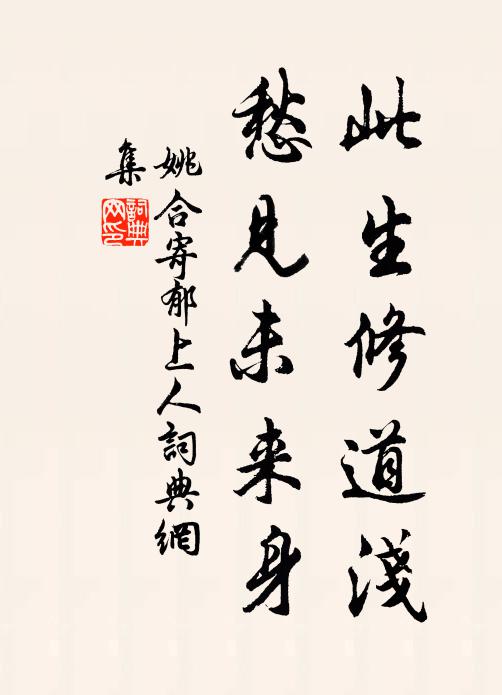 此生修道淺
愁見未来身
姚合寄郁上人詞典網
集
詞典
网印